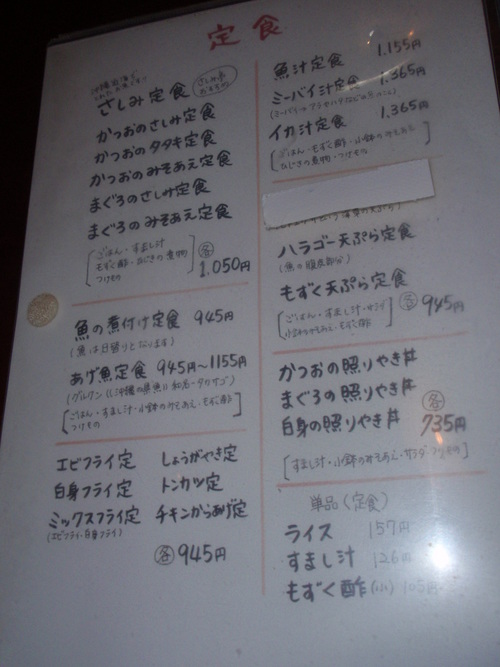 定食
さしみ定食
かつおのさしみ定食
かつおのタタキ定食
かつおのみそあえ定食
まぐろのさしみ定食
まぐろのみそあえ定食
ごはん・すまし汁
もずく酢・ひじきの煮物
つけもの
各 1.050円
魚の煮付け定食 945円
(魚は日替りとなります)
あげ魚定食 945円〜1155円
ごはん・すまし汁・小鉢のみそあえ・もずく酢
つけもの
エビフライ定 しょうがやき定
白身フライ定 トンカツ定
ミックスフライ定 チキンからあげ定
(エビフライ・白身フライ)
各 945円
魚汁定食 1.155円
ミーバイ汁定食 1.365円
イカ汁定食 1.365円
ごはん・もずく酢・小鉢のみそあえ
ひじきの煮物・つけもの
ハラゴー天ぷら定食
(魚の腹皮部分)
もずく天ぷら定食
各 945円
ごはん・すまし汁・サラダ
小鉢のみそあえ・もずく酢
かつおの照りやき丼
まぐろの照りやき丼
白身の照りやき丼
各 735円
すまし汁・小鉢のみそあえ・サラダ・つけもの
単品(定食)
ライス 157円
すまし汁 126円
もずく酢(小) 105円